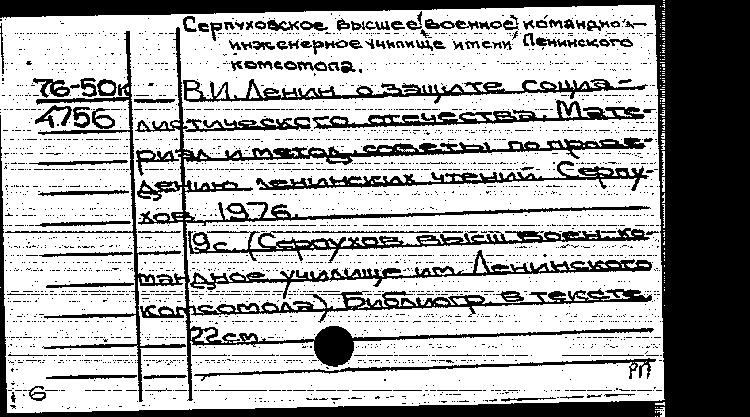 Серпуховское высшее военное командно-
инженерное училище имени Ленинского
комсомола.
76-50к В.И. Ленин о защите социа-
4756 листического отечества. Мате-
риал и метод. советы по прове-
дению ленинских чтений. Серпу-
хов, 1976.
19с. (Серпухов. высш. воен. ко-
мандное училище им. Ленинского
комсомола). Библиогр. в тексте.
22см.
РП
6